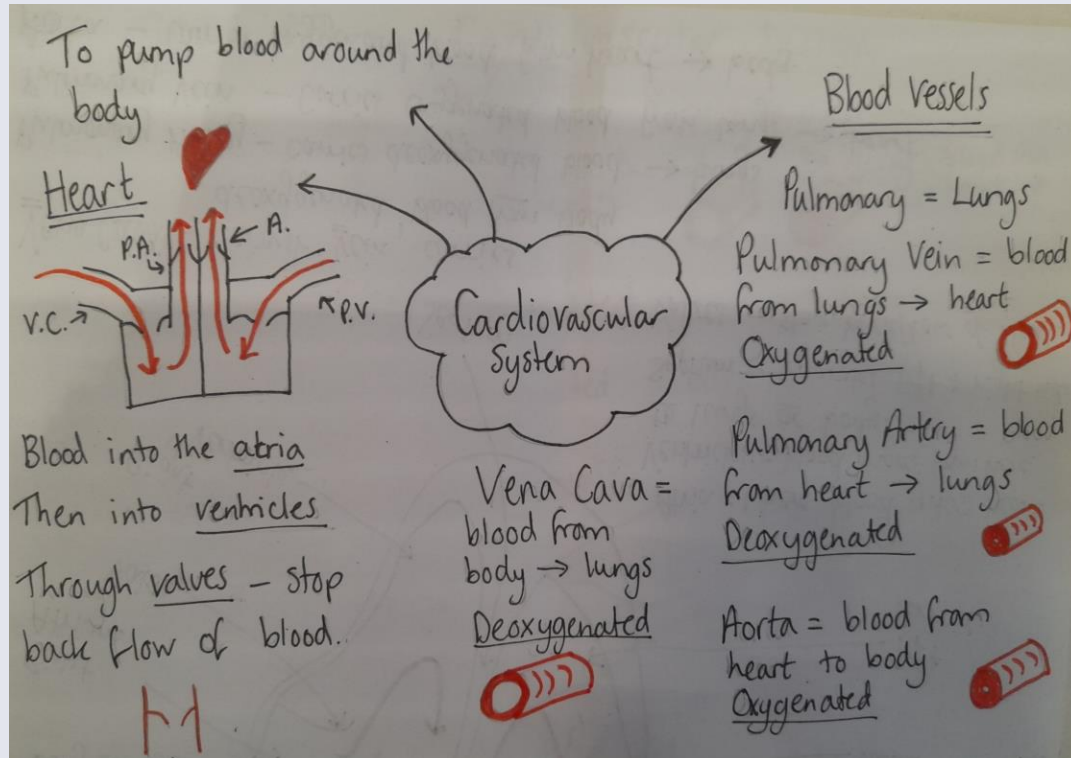 To pump blood around the
body
Heart
P.A.
A.
V.C.
P.V.
Blood into the atria
Then into ventricles
Through valves – stop
back flow of blood.
Cardiovascular
System
Vena Cava =
blood from
body → lungs
Deoxygenated
Blood Vessels
Pulmonary = Lungs
Pulmonary Vein = blood
from lungs → heart
Oxygenated
Pulmonary Artery = blood
from heart → lungs
Deoxygenated
Aorta = blood from
heart to body
Oxygenated